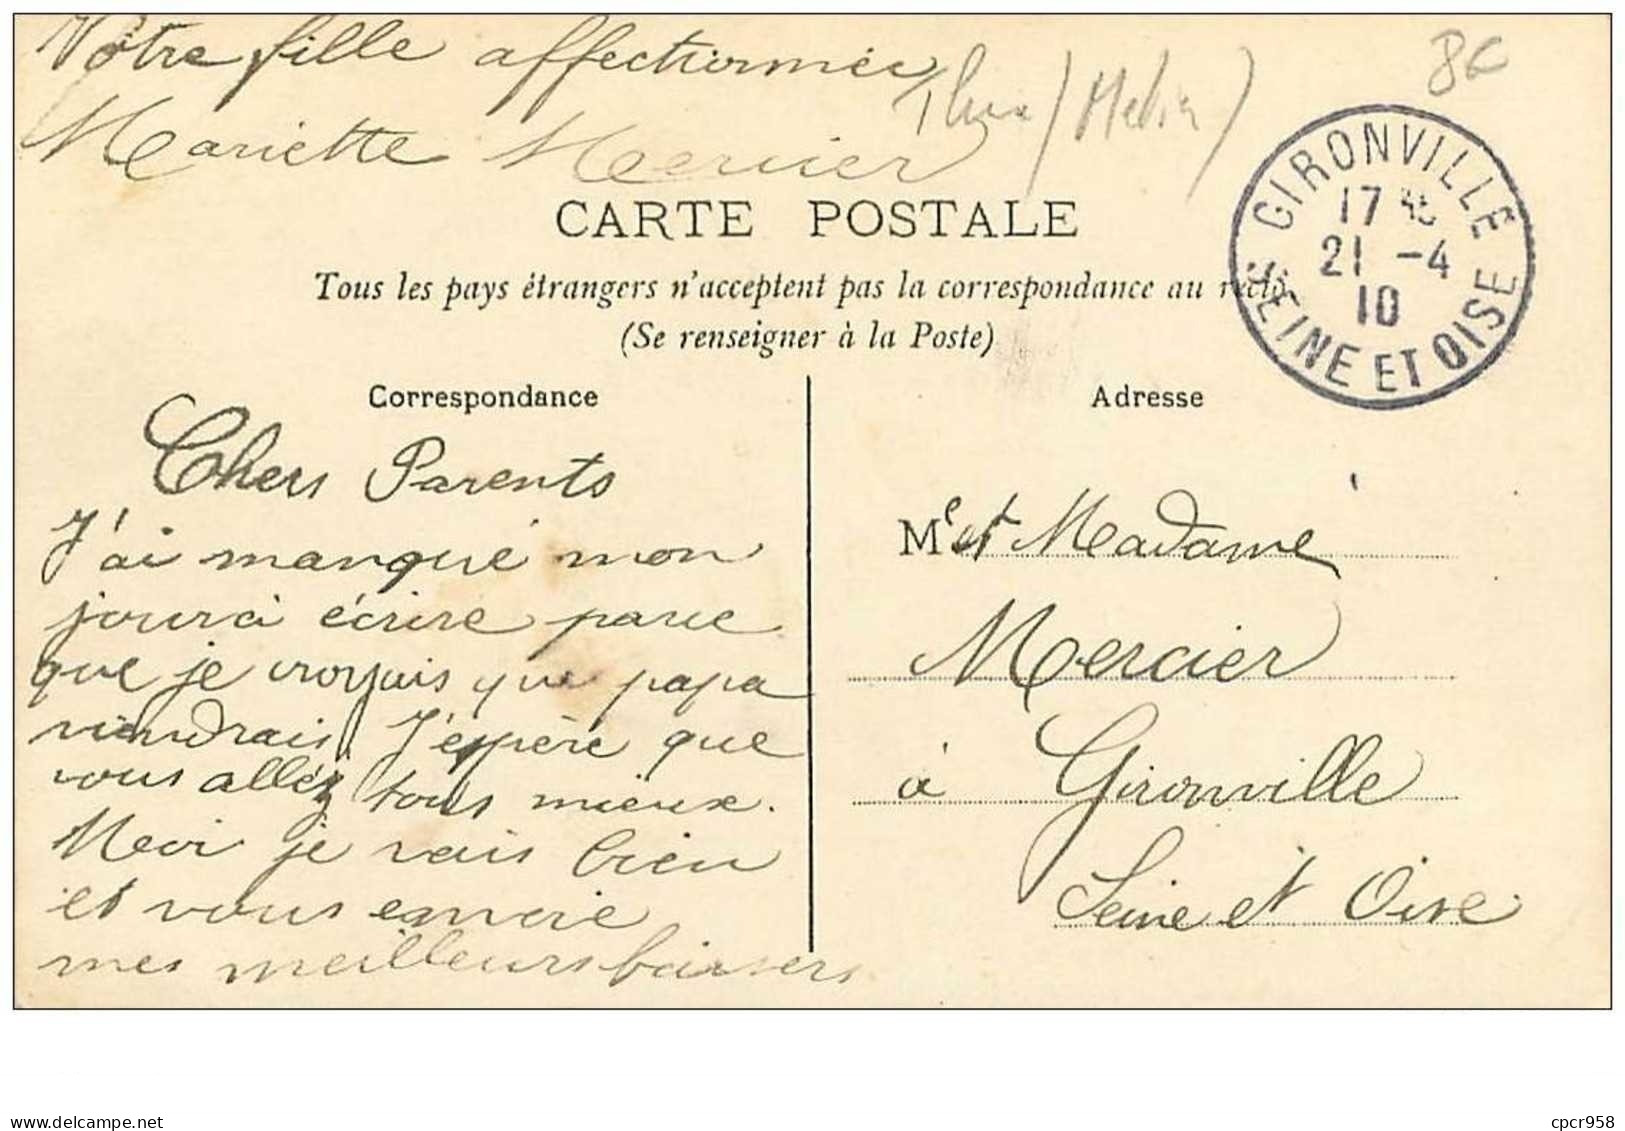 Votre fille affectionnée
Mariette Mercier
86
CARTE POSTALE
Tous les pays étrangers n'acceptent pas la correspondance au recto
(Se renseigner à la Poste)
GIRONVILLE
17 45
21 -4
10
SEINE ET OISE
Correspondance
Chers Parents
J'ai manqué mon
jour à écrire parce
que je croyais que papa
viendrais. J'espère que
vous alléz tous mieux.
Moi je vais bien
et vous envoie
mes meilleurs baisers
Adresse
M et Madame
Mercier
à Gironville
Seine et Oise
www.delcampe.net
cpcr958